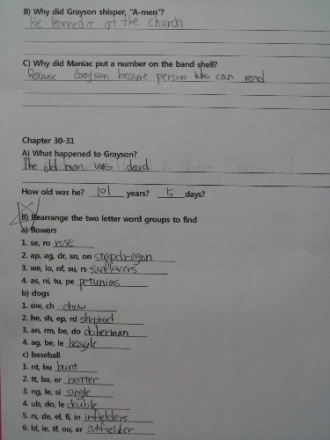 B) Why did Grayson shisper, "A-men"?
He learned it at the church
C) Why did Maniac put a number on the band shell?
Because Grayson become person who can read
Chapter 30-31
A) What happened to Grayson?
The old man was dead
How old was he? 101 years? 5 days?
B) Rearrange the two letter word groups to find
a) flowers
1. se, ro rose
2. ap, ag, dr, sn, on snapdragon
3. we, lo, nf, su, rs sunflowers
4. as, ni, tu, pe petunias
b) dogs
1. ow, ch chow
2. he, sh, ep, rd shepherd
3. an, rm, be, do doberman
4. ag, be, le beagle
c) baseball
1. nt, bu bunt
2. tt, ba, er batter
3. ng, le, si single
4. ub, do, le double
5. rs, de, el, fi, in infielders
6. ld, ie, tf, ou, er outfielder